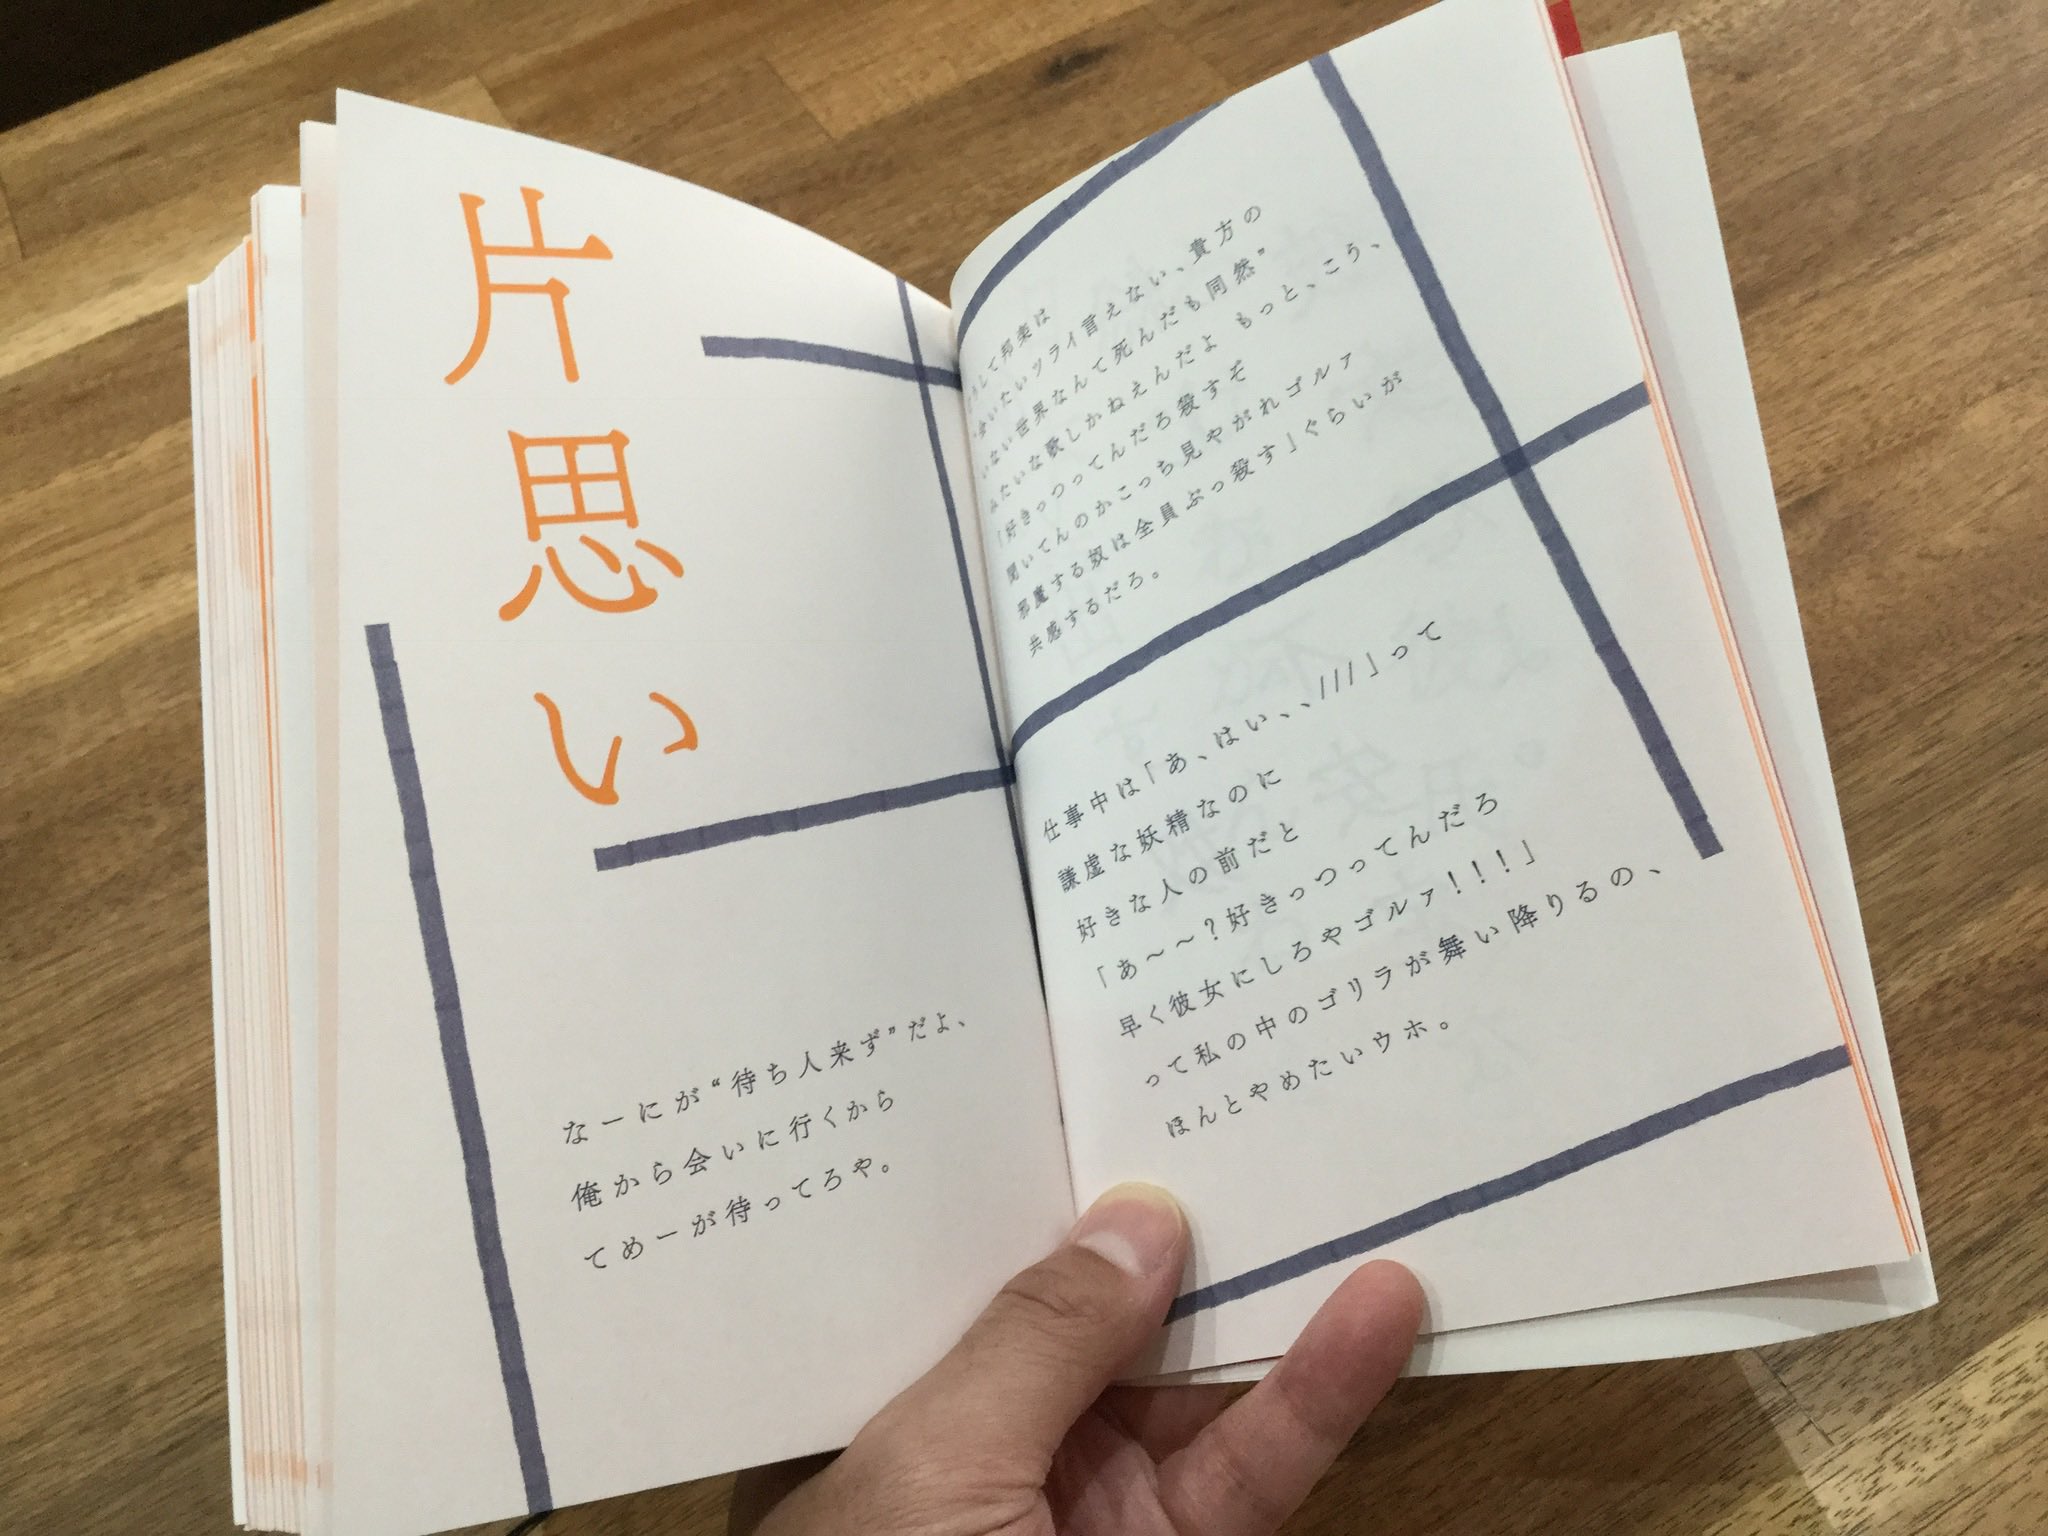 片思い
なーにが“待ち人来ず”だよ、
俺から会いに行くから
てめーが待ってろや。
どうして邦楽は
“会いたいツライ言えない、貴方の
いない世界なんて死んだも同然”
みたいな歌しかねえんだよ もっと、こう、
「好きっつってんだろ殺すぞ
聞いてんのかこっち見やがれゴルァ
邪魔する奴は全員ぶっ殺す」ぐらいが
共感するだろ。
仕事中は「あ、はい、、///」って
謙虚な妖精なのに
好きな人の前だと
「あ～～?好きっつってんだろ
早く彼女にしろやゴルァ!!!」
って私の中のゴリラが舞い降りるの、
ほんとやめたいウホ。